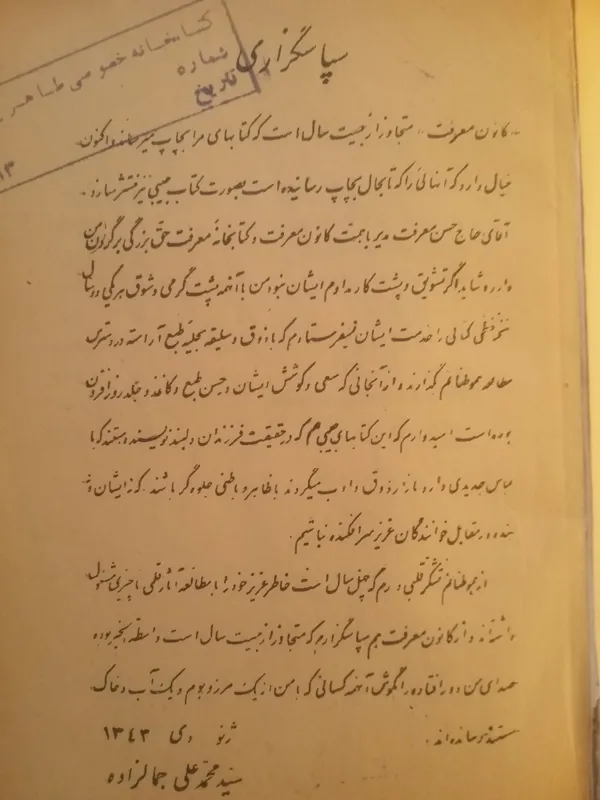 کتابخانه خصوصی طاهری
شماره
تاریخ
۱۳
سپاسگزاری
«کانون معرفت» متجاوز از بیست سال است که کتابهای مرا بچاپ میرساند و اکنون
خیال دارد که آنهائی را که تا بحال بچاپ رسانیده است بصورت کتاب جیبی نیز منتشر سازد.
آقای حاج حسن معرفت مدیر با همت کانون معرفت و کتابخانهٔ معرفت حق بزرگی برگردن من
دارد و شاید اگر تشویق و پشت کار مداوم ایشان نبود من با آنهمه پشت گرمی و شوق هر یکی دو سال
نمیفرستادم که با ذوق و سلیقه بحلیه طبع آراسته در دسترس
مطالعهٔ هموطنانم گذارند و از آنجائی که سعی و کوشش ایشان و حسن طبع و کاغذ و جلد روز افزون
بوده است امیدوارم که این کتابهای جیبی هم که در حقیقت فرزندان دلبند نویسنده هستند که با
لباس جدیدی وارد بازار ذوق و ادب میگردند با ظاهر و باطنی جلوه گر باشند که ایشان و
بنده در مقابل خوانندگان عزیز سرافکنده نباشیم.
از هموطنانم تشکر قلبی دارم که چهل سال است خاطر عزیز خود را با مطالعهٔ آثار قلمی ناچیزی مشغول
داشته‌اند و از کانون معرفت هم سپاسگزارم که متجاوز از بیست سال است واسطه الخیر بوده
صدای من دور افتاده را بگوش آنهمه کسانی که با من از یک مرز و بوم و یک آب و خاک
هستند رسانده‌اند.
ژنو دی ۱۳۴۳
سید محمد علی جمالزاده